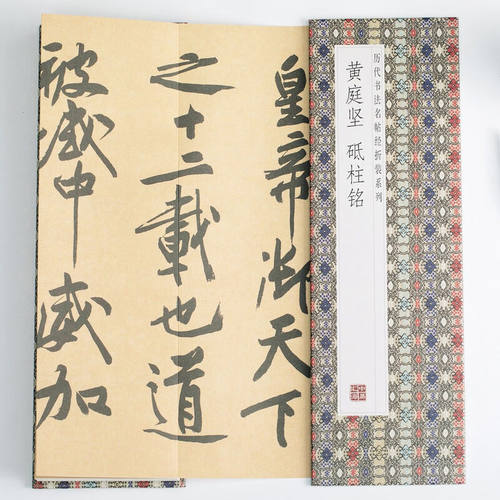 历代书法名帖经折装系列
黄庭坚 砥柱铭
皇帝御天下
之十二載也道
被域中威加